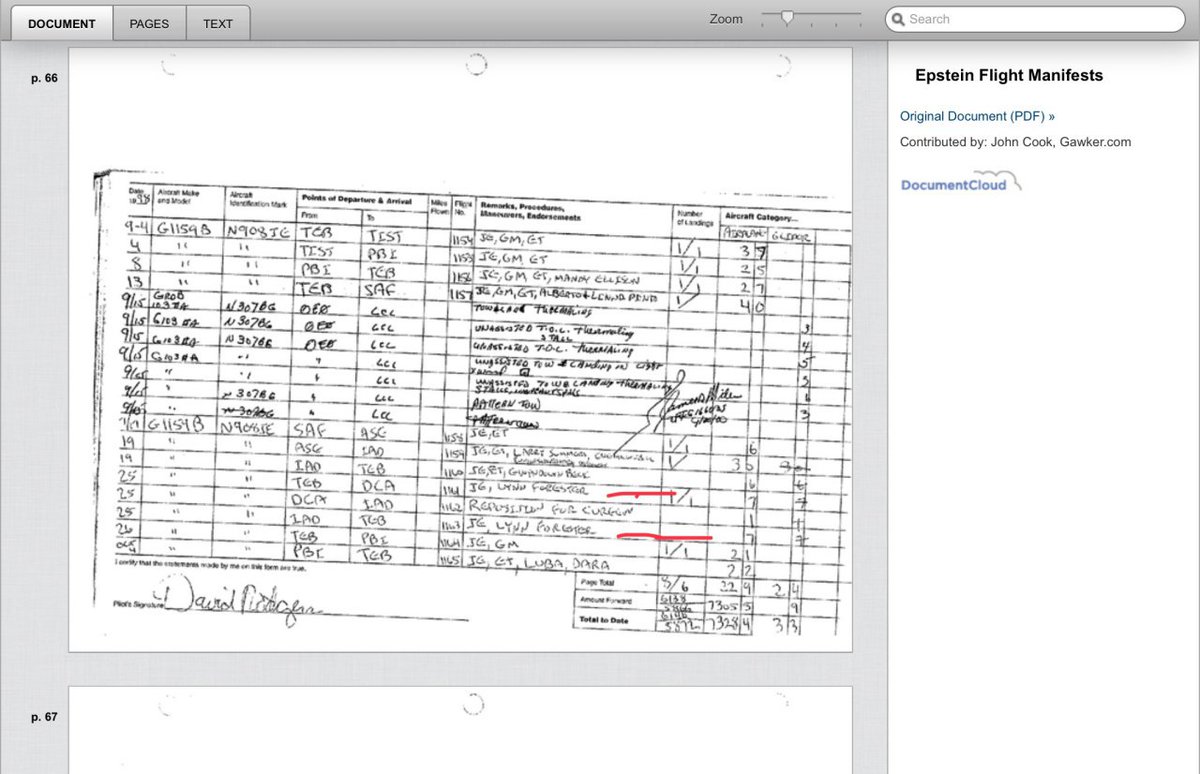 DOCUMENT PAGES TEXT Zoom Search
p. 66
Epstein Flight Manifests
Original Document (PDF) »
Contributed by: John Cook, Gawker.com
DocumentCloud
Date 1998 Aircraft Make and Model Aircraft Identification Mark Points of Departure & Arrival From To Miles Flown Flight No. Remarks, Procedures, Maneuvers, Endorsements Number of Landings Aircraft Category
9-4 G1159B N908JE TEB TIST 1154 JE, GM, ET 1/1 3 9
4 " " TIST PBI 1155 JE, GM, ET 1/1 2 5
8 " " PBI TEB 1156 JE, GM, ET, MANDY ELLISON 1/1 2 7
13 " " TEB SAF 1157 JE, GM, ET, ALBERTO & LINDA PINTO 4 0
9/15 GROB 103 N307BG LCC 3
9/15 G103 N307BG LCC UNASSISTED T.O.L. THERMALING STALL 4
9/15 G103 N307BG LCC UNASSISTED T.O.L. THERMALING 5
9/15 G103 " " LCC UNASSISTED TOW & LANDING IN 3
" " LCC UNASSISTED TOW & LANDING THERMALING
" N307BG " LCC PATTERN TOW 3
" N307BG " LCC
G1159B N908JE SAF ASC 1158 JE, ET 1/1 6
19 " " ASC IAD 1159 JE, ET, LARRY SUMMERS 3 6
19 " " IAD TEB 1160 JE, ET, GWENDOLYN BECK 6
25 " " TEB DCA 1161 JE, LYNN FORESTER 1/1 7
25 " " DCA IAD 1162 REPOSITION FOR CURFEW 1
25 " " IAD TEB 1163 JE, LYNN FORESTER 7
26 " " TEB PBI 1164 JE, GM 1/1 2 1
" " PBI TEB 1165 JE, ET, LUBA, DARA 2 2
I certify that the statements made by me on this form are true.
Page Total 8/6 22 9 2 4
Amount Forward 7305 5 9
Total to Date 7328 4 3 3
Pilot's Signature David Rodgers
p. 67